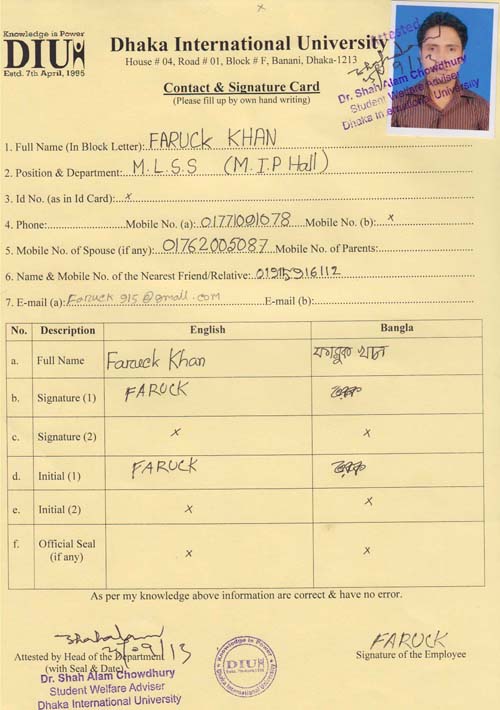 Knowledge is Power
DIU
Estd. 7th April, 1995
Dhaka International University
House # 04, Road # 01, Block # F, Banani, Dhaka-1213
Contact & Signature Card
(Please fill up by own hand writing)
Attested
Dr. Shah Alam Chowdhury
Student Welfare Adviser
Dhaka International University
1. Full Name (In Block Letter): FARUCK KHAN
2. Position & Department: M.L.S.S (M.I.P Hall)
3. Id No. (as in Id Card): x
4. Phone: Mobile No. (a): 01771091078 Mobile No. (b): x
5. Mobile No. of Spouse (if any): 01762005087 Mobile No. of Parents:
6. Name & Mobile No. of the Nearest Friend/Relative: 01915916112
7. E-mail (a): Faruck 915@gmail.com E-mail (b):
No. Description English Bangla
a. Full Name Faruck Khan ফারুক খান
b. Signature (1) FARUCK
c. Signature (2) x x
d. Initial (1) FARUCK
e. Initial (2) x x
f. Official Seal (if any) x x
As per my knowledge above information are correct & have no error.
FARUCK
Attested by Head of the Department
(with Seal & Date)
Signature of the Employee
Dr. Shah Alam Chowdhury
Student Welfare Adviser
Dhaka International University
Knowledge is Power
DIU
Dhaka International University